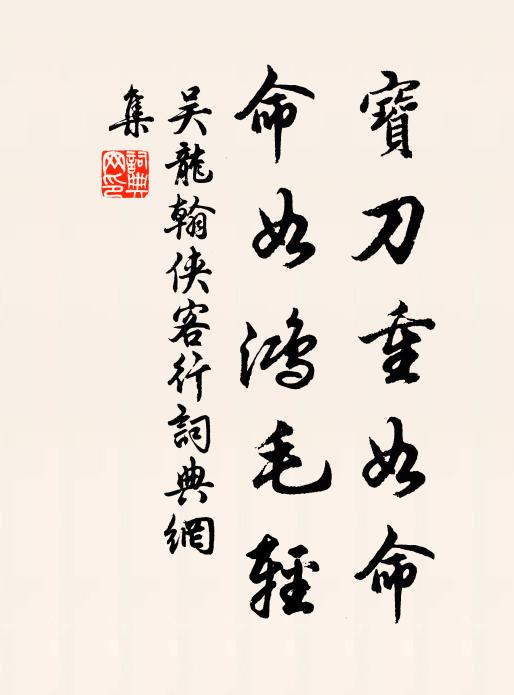 寶刀重如命
命如鴻毛輕
吴龍翰俠客行詞典網
集
詞典
网印